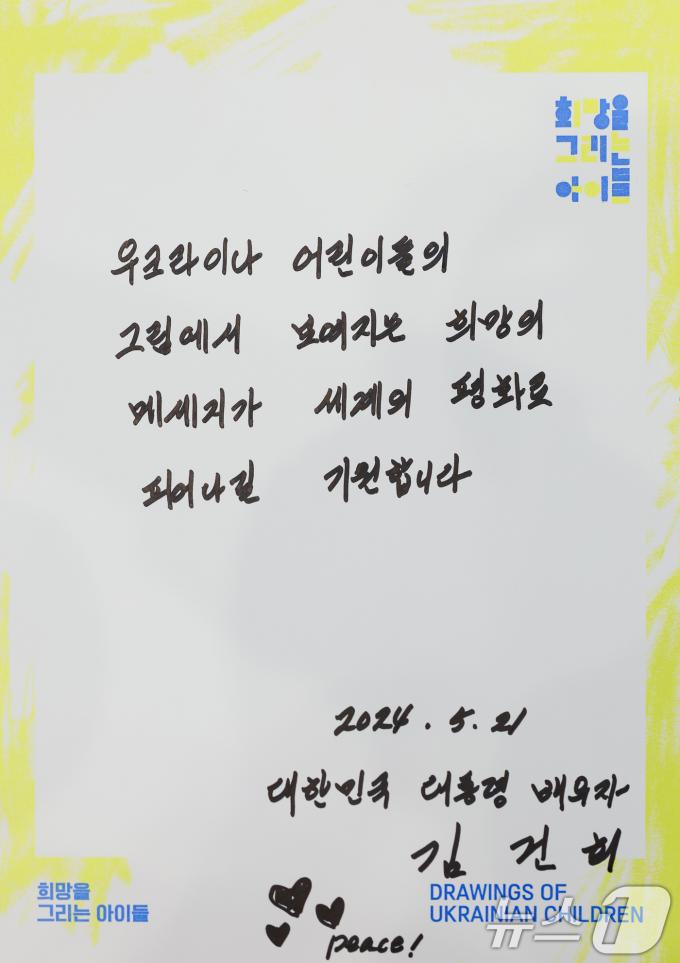 희망을
그리는
아이들
우크라이나 어린이들의
그림에서 보여지는 희망의
메세지가 세계의 평화로
피어나길 기원합니다
2024. 5. 21
대한민국 대통령 배우자
김건희
peace!
희망을
그리는 아이들
DRAWINGS OF
UKRAINIAN CHILDREN
뉴스1